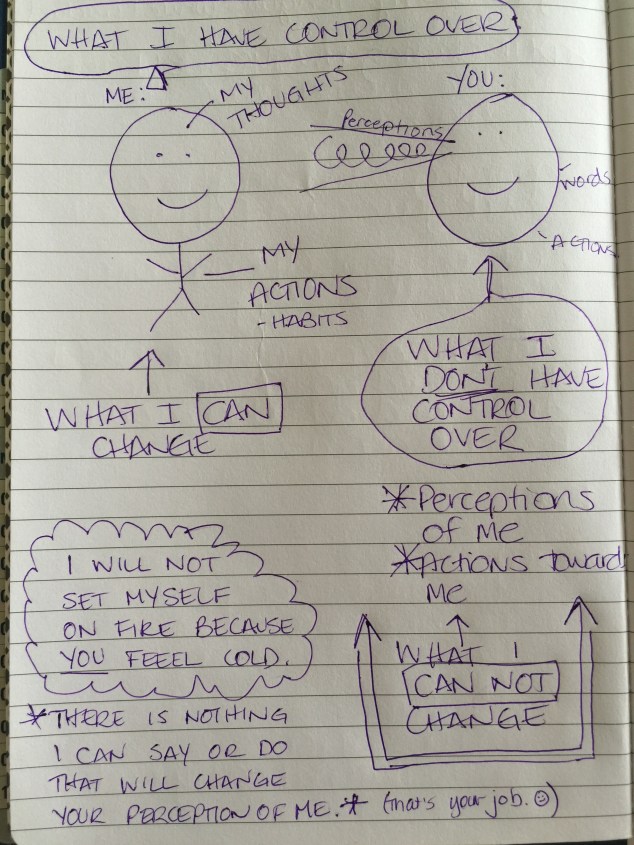 WHAT I HAVE CONTROL OVER
ME:
MY
THOUGHTS
YOU:
Perceptions
words
ACTIONS
MY
ACTIONS
- HABITS
WHAT I CAN
CHANGE
WHAT I
DON'T HAVE
CONTROL
OVER
*Perceptions
of Me
*Actions toward
Me
WHAT I
CAN NOT
CHANGE
I WILL NOT
SET MYSELF
ON FIRE BECAUSE
YOU FEEEL COLD.
*THERE IS NOTHING
I CAN SAY OR DO
THAT WILL CHANGE
YOUR PERCEPTION OF ME.* (that's your job. ☺)